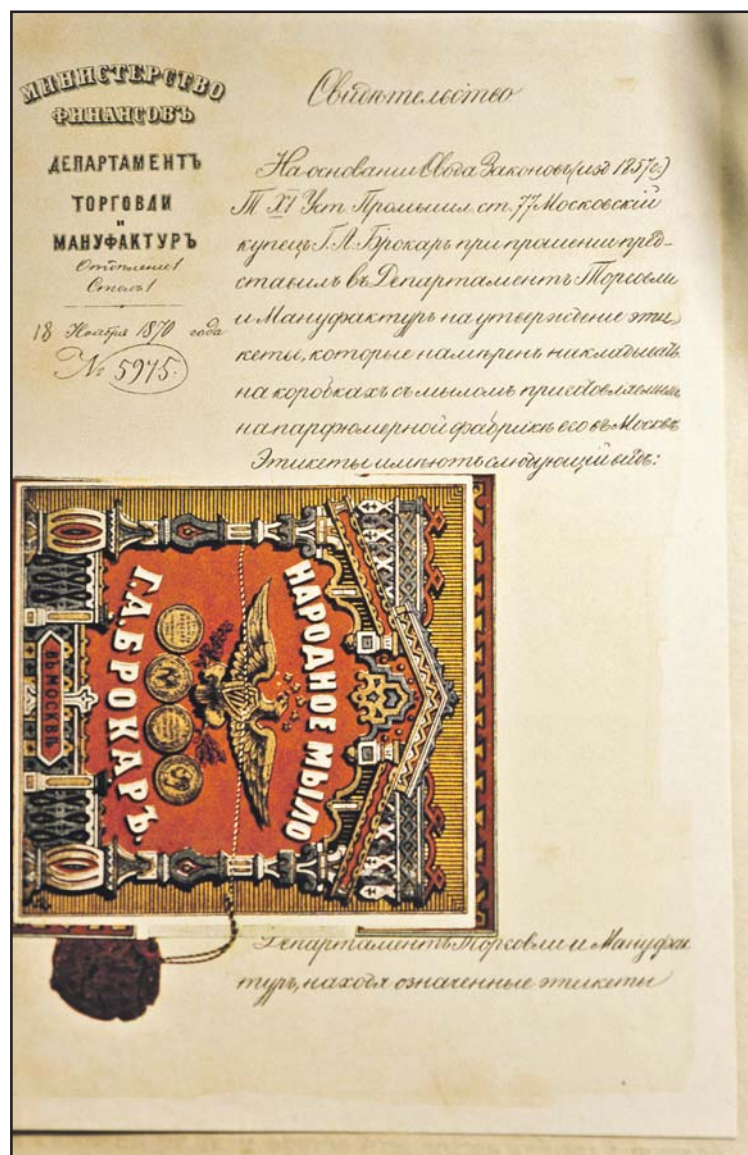 МИНИСТЕРСТВО
ФИНАНСОВЪ
ДЕПАРТАМЕНТЪ
ТОРГОВЛИ
и
МАНУФАКТУРЪ
Отдѣленіе 1
Столъ 1
18 Ноября 1870 года
№ 5975.
Свидѣтельство
На основаніи Свода Законовъ (изд 1857 г.)
Т XI Уст Промышл. ст. 77 Московскій
купецъ Г. А. Брокаръ при прошеніи пред-
ставилъ въ Департаментъ Торговли
и Мануфактуръ на утвержденіе эти-
кеты, которые намѣренъ накладывать
на коробкахъ съ мыломъ приготовляемымъ
на парфюмерной фабрикѣ его въ Москвѣ
Этикеты имѣютъ слѣдующій видъ:
НАРОДНОЕ МЫЛО
Г.А.БРОКАРЪ.
ВЪ МОСКВѢ.
Департаментъ Торговли и Мануфак
туръ, находя означенные этикеты